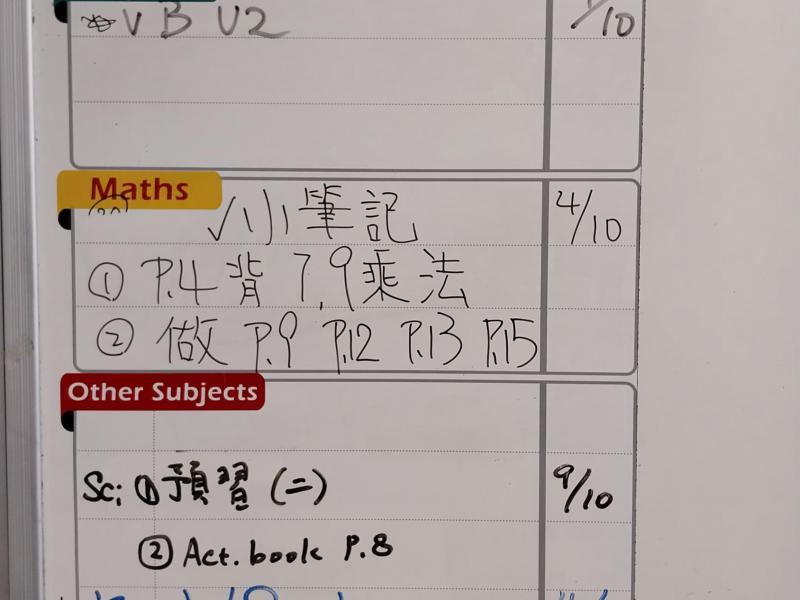 V B U2 /10
Maths
小筆記 4/10
① P.4 背 7,9乘法
② 做 P.9 P.12 P.13 P.15
Other Subjects
Sc: ① 預習 (二) 9/10
② Act. book P.8